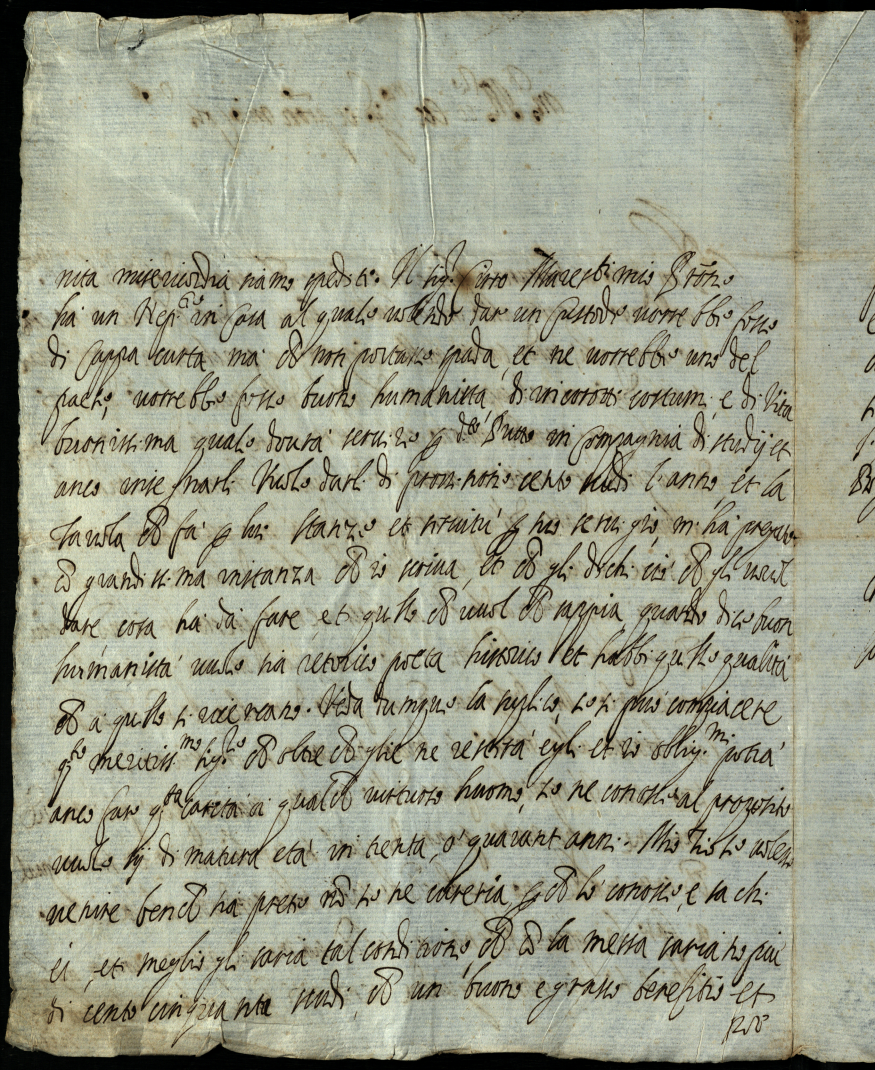 nita misericordia siamo spediti. Il sig.r Cirro Maresti mio Prōne
ha un Nep.te in Casa al quale volendo dar un Custode vorrebbe fosse
di Cappa curta ma che non portasse spada, et ne vorrebbe uno del
paese, vorrebbe fosse buono humanista, di incorrotti costumi e di Vita
buonissima quale dovrà servire p d.to Putto in Compagnia di studij et
anco insegnarli. Vuole darli di provisione cento scudi l'anno, et la
Tavola che fa p lui stanze et servitù p suo servigio, m'ha pregato
cō grandissima instanza che io scriva, et che gli dichi ciò che gli vuol
dare cosa ha da fare, et quello che vuol che sappia quando dico buon
humanista vuole sia retorico poeta historico et habbi quelle qualità
che a quello si ricercano. Veda dunque la suplico, se si può compiacere
q.sto meritiss.mo sig.re che oltre che glie ne resterà egli et io oblig.mi potrà
anco fare q.sta carità a qualche virtuoso huomo, se ne conosce al proposito
vuole sij di matura età in trenta, o quarant'anni. Mio Zio se volesse
venire benche sia prete nō se ne cureria, p che lo conosce, e sa chi
ei, et meglio gli saria tal conditione che cō la messa saria no più
di cento cinquanta scudi, che un buono e grasso benefitio et